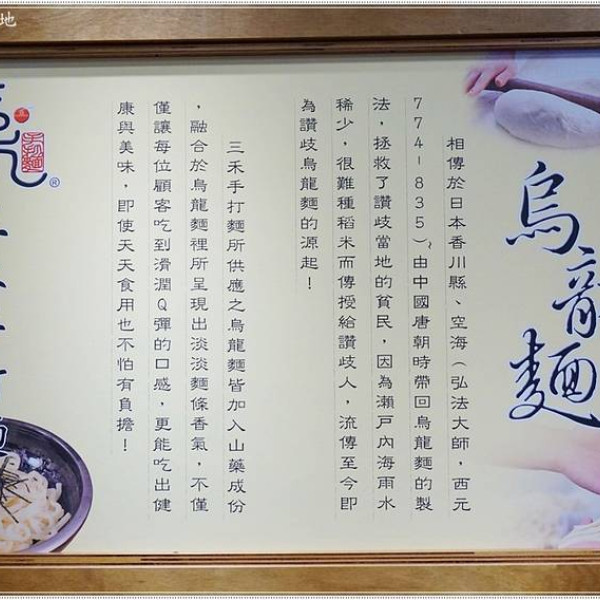 地
烏龍麵
相傳於日本香川縣、空海(弘法大師,西元
774-835)由中國唐朝時帶回烏龍麵的製
法,拯救了讚歧當地的貧民,因為瀨戶內海雨水
稀少,很難種稻米而傳授給讚歧人,流傳至今即
為讚歧烏龍麵的源起!
三禾手打麵所供應之烏龍麵皆加入山藥成份
,融合於烏龍麵裡所呈現出淡淡麵條香氣,不僅
僅讓每位顧客吃到滑潤Q彈的口感,更能吃出健
康與美味,即使天天食用也不怕有負擔!
手打麵
®